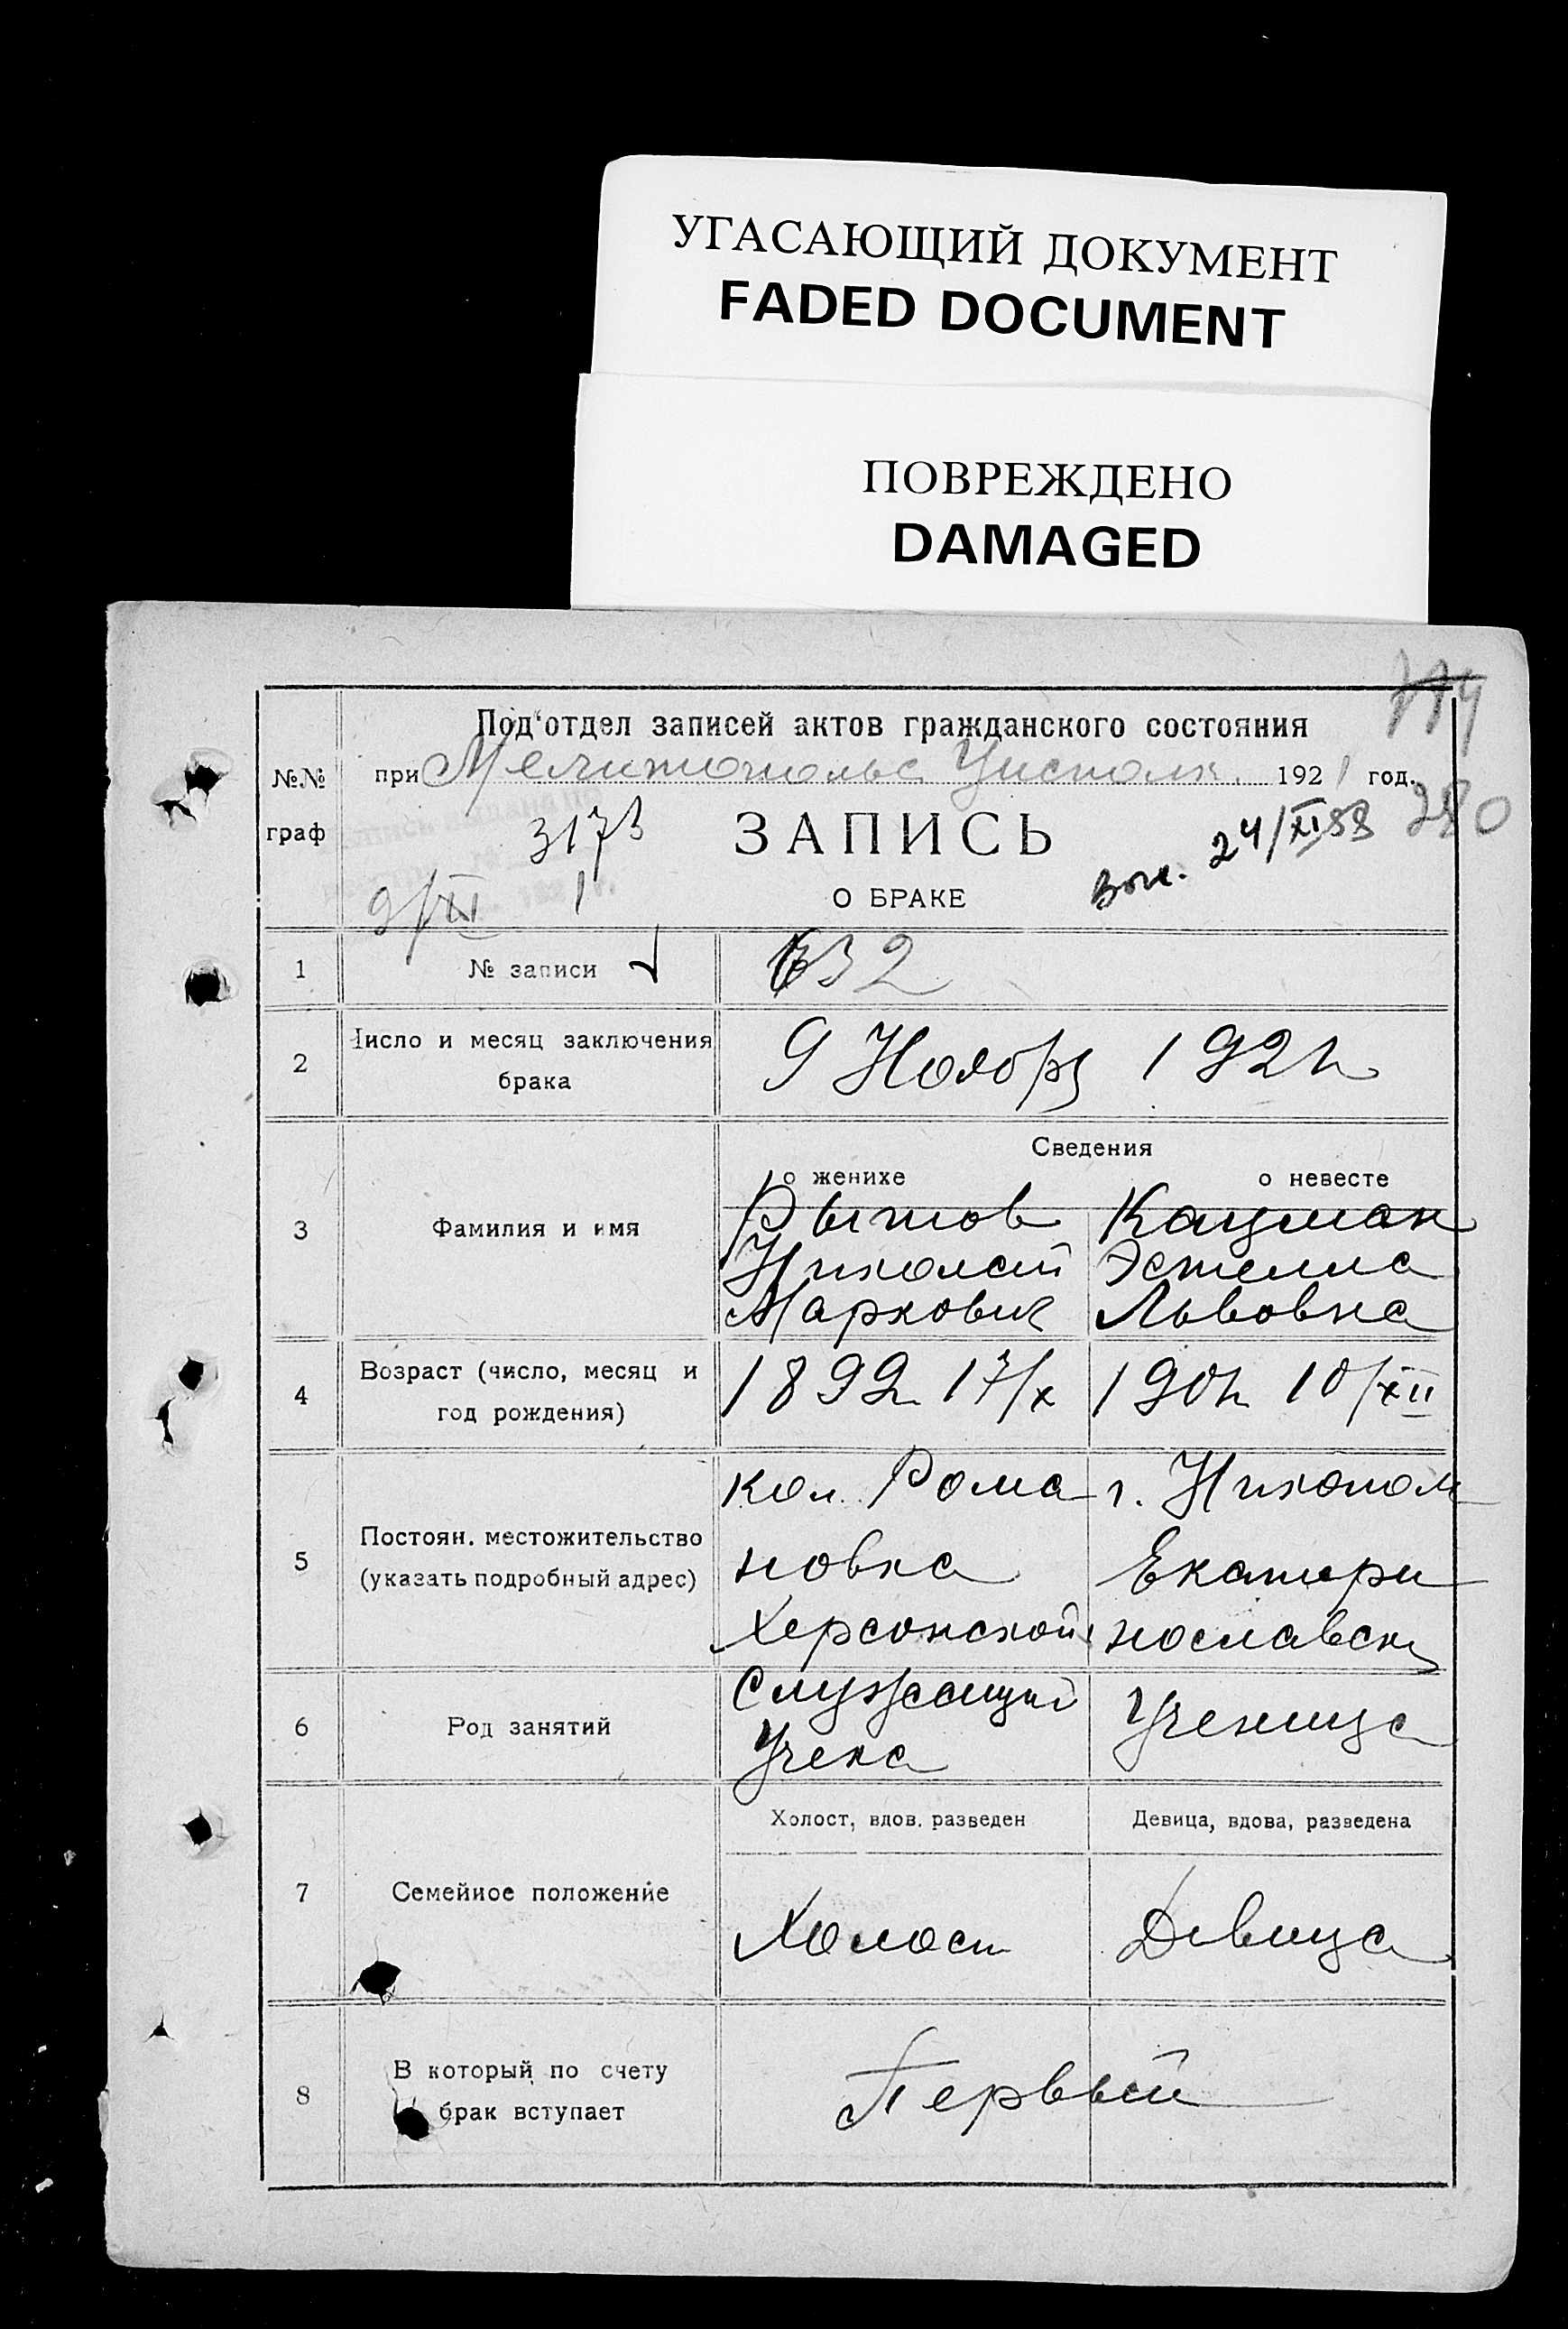 УГАСАЮЩИЙ ДОКУМЕНТ
FADED DOCUMENT
ПОВРЕЖДЕНО
DAMAGED
Под‘отдел записей актов гражданского состояния
при Мелитопольс. Уисполк. 1921 год.
№№ граф
3173
ЗАПИСЬ
О БРАКЕ
24/XI 58
280
9/XI
1 № записи 632
2 Число и месяц заключения брака 9 Ноябрь 1921
Сведения
о женихе о невесте
3 Фамилия и имя
Рытов Кацман
Николай Эстелла
Маркович Львовна
4 Возраст (число, месяц и год рождения) 1892 17/X 1901 10/XII
5 Постоян. местожительство (указать подробный адрес)
кол. Рома г. Никопол
новка Екатери
Херсонской нославск
6 Род занятий
Служащий Ученица
Учека
7 Семейное положение
Холост, вдов. разведен Девица, вдова, разведена
Холост Девица
8 В который по счету брак вступает Первый